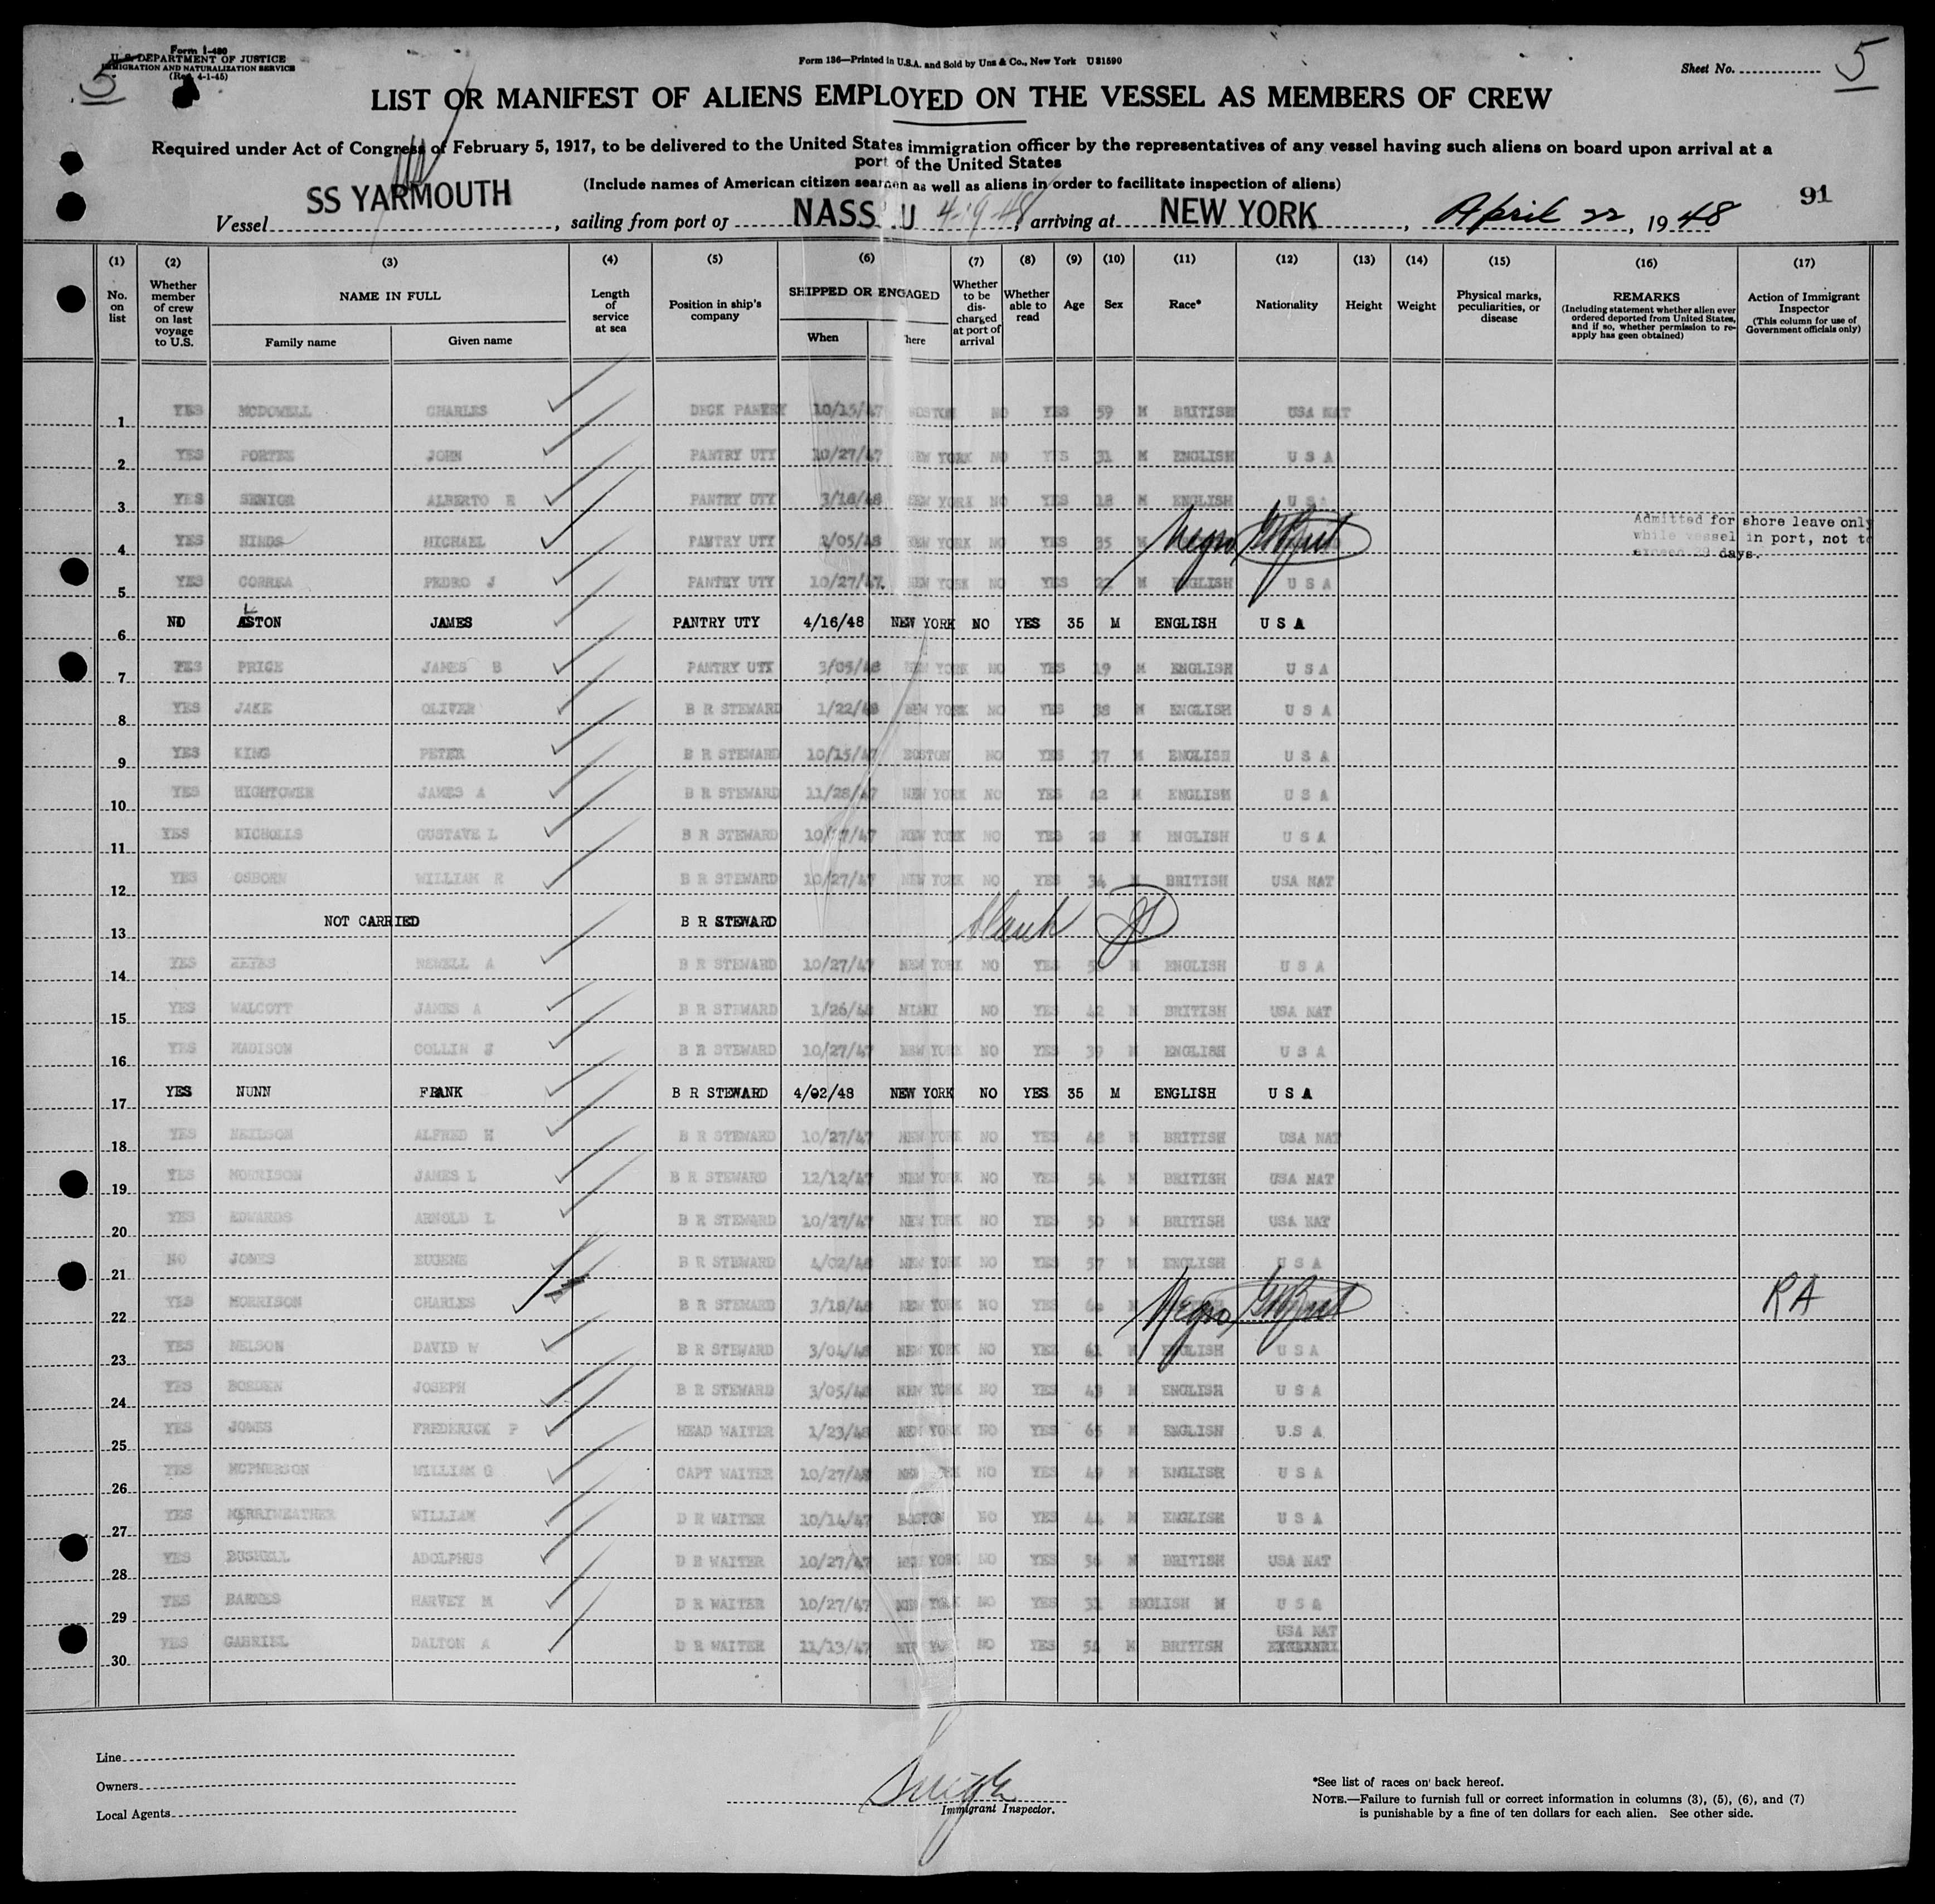 Form I-480
U. S. DEPARTMENT OF JUSTICE
IMMIGRATION AND NATURALIZATION SERVICE
(Rev. 4-1-45)
5
Form 136—Printed in U.S.A. and Sold by Unz & Co., New York U81590
Sheet No. 5
LIST OR MANIFEST OF ALIENS EMPLOYED ON THE VESSEL AS MEMBERS OF CREW
Required under Act of Congress of February 5, 1917, to be delivered to the United States immigration officer by the representatives of any vessel having such aliens on board upon arrival at a
port of the United States
(Include names of American citizen seamen as well as aliens in order to facilitate inspection of aliens)
91
Vessel SS YARMOUTH, sailing from port of NASSAU 4-19-48, arriving at NEW YORK, April 22, 1948
(1) (2) (3) (4) (5) (6) (7) (8) (9) (10) (11) (12) (13) (14) (15) (16) (17)
No. on list
Whether member of crew on last voyage to U.S.
NAME IN FULL
Family name Given name
Length of service at sea
Position in ship's company
SHIPPED OR ENGAGED
When here
Whether to be discharged at port of arrival
Whether able to read
Age
Sex
Race*
Nationality
Height
Weight
Physical marks, peculiarities, or disease
REMARKS
(Including statement whether alien ever ordered deported from United States, and if so, whether permission to re-apply has geen obtained)
Action of Immigrant Inspector
(This column for use of Government officials only)
1 YES MCDOWELL CHARLES DECK PANTRY 10/15/47 BOSTON NO YES 59 M BRITISH USA NAT
2 YES PORTER JOHN PANTRY UTY 10/27/47 NEW YORK NO YES 31 M ENGLISH U S A
3 YES SENIOR ALBERTO E PANTRY UTY 3/18/48 NEW YORK NO YES 18 M ENGLISH U S A
4 YES HINDS MICHAEL PANTRY UTY 2/05/48 NEW YORK NO YES 35 M Negro Admitted for shore leave only
while vessel in port, not to
exceed 29 days.
5 YES CORREA PEDRO J PANTRY UTY 10/27/47 NEW YORK NO YES 22 M ENGLISH U S A
6 NO ALSTON JAMES PANTRY UTY 4/16/48 NEW YORK NO YES 35 M ENGLISH U S A
7 YES PRICE JAMES B PANTRY UTY 3/05/48 NEW YORK NO YES 19 M ENGLISH U S A
8 YES JAKE OLIVER B R STEWARD 1/22/48 NEW YORK NO YES 38 M ENGLISH U S A
9 YES KING PETER B R STEWARD 10/15/47 BOSTON NO YES 37 M ENGLISH U S A
10 YES HIGHTOWER JAMES A B R STEWARD 11/28/47 NEW YORK NO YES 42 M ENGLISH U S A
11 YES NICHOLLS GUSTAVE L B R STEWARD 10/27/47 NEW YORK NO YES 28 M ENGLISH U S A
12 YES OSBORN WILLIAM R B R STEWARD 10/27/47 NEW YORK NO YES 34 M BRITISH USA NAT
13 NOT CARRIED B R STEWARD blank
14 YES NEWELL A B R STEWARD 10/27/47 NEW YORK NO YES M ENGLISH U S A
15 YES WALCOTT JAMES A B R STEWARD 1/26/48 MIAMI NO YES 42 M BRITISH USA NAT
16 YES MADISON COLLIN S B R STEWARD 10/27/47 NEW YORK NO YES 39 M ENGLISH U S A
17 YES NUNN FRANK B R STEWARD 4/02/48 NEW YORK NO YES 35 M ENGLISH U S A
18 YES NEILSON ALFRED H B R STEWARD 10/27/47 NEW YORK NO YES 48 M BRITISH USA NAT
19 YES MORRISON JAMES L B R STEWARD 12/12/47 NEW YORK NO YES 54 M BRITISH USA NAT
20 YES EDWARDS ARNOLD L B R STEWARD 10/27/47 NEW YORK NO YES 50 M BRITISH USA NAT
21 NO JONES EUGENE B R STEWARD 4/02/48 NEW YORK NO YES 57 M ENGLISH U S A
22 YES MORRISON CHARLES B R STEWARD 3/18/48 NEW YORK NO YES M Negro RA
23 YES NELSON DAVID W B R STEWARD 3/04/48 NEW YORK NO YES 61 M ENGLISH U S A
24 YES BORDEN JOSEPH B R STEWARD 3/05/48 NEW YORK NO YES 43 M ENGLISH U S A
25 YES JONES FREDERICK P HEAD WAITER 1/23/48 NEW YORK NO YES 65 M ENGLISH U.S A
26 YES MCPHERSON WILLIAM G CAPT WAITER 10/27/48 NEW YORK NO YES 49 M ENGLISH U S A
27 YES MERRIWEATHER WILLIAM D R WAITER 10/14/47 BOSTON NO YES 44 M ENGLISH U S A
28 YES BUSHELL ADOLPHUS D R WAITER 10/27/47 NEW YORK NO YES 56 M BRITISH USA NAT
29 YES BARNES HARVEY M D R WAITER 10/27/47 NEW YORK NO YES 32 ENGLISH M U S A
30 YES GABRIEL DALTON A D R WAITER 11/13/47 NEW YORK NO YES 54 M BRITISH USA NAT
Line
Owners
Local Agents
Immigrant Inspector.
*See list of races on back hereof.
NOTE.—Failure to furnish full or correct information in columns (3), (5), (6), and (7)
is punishable by a fine of ten dollars for each alien. See other side.